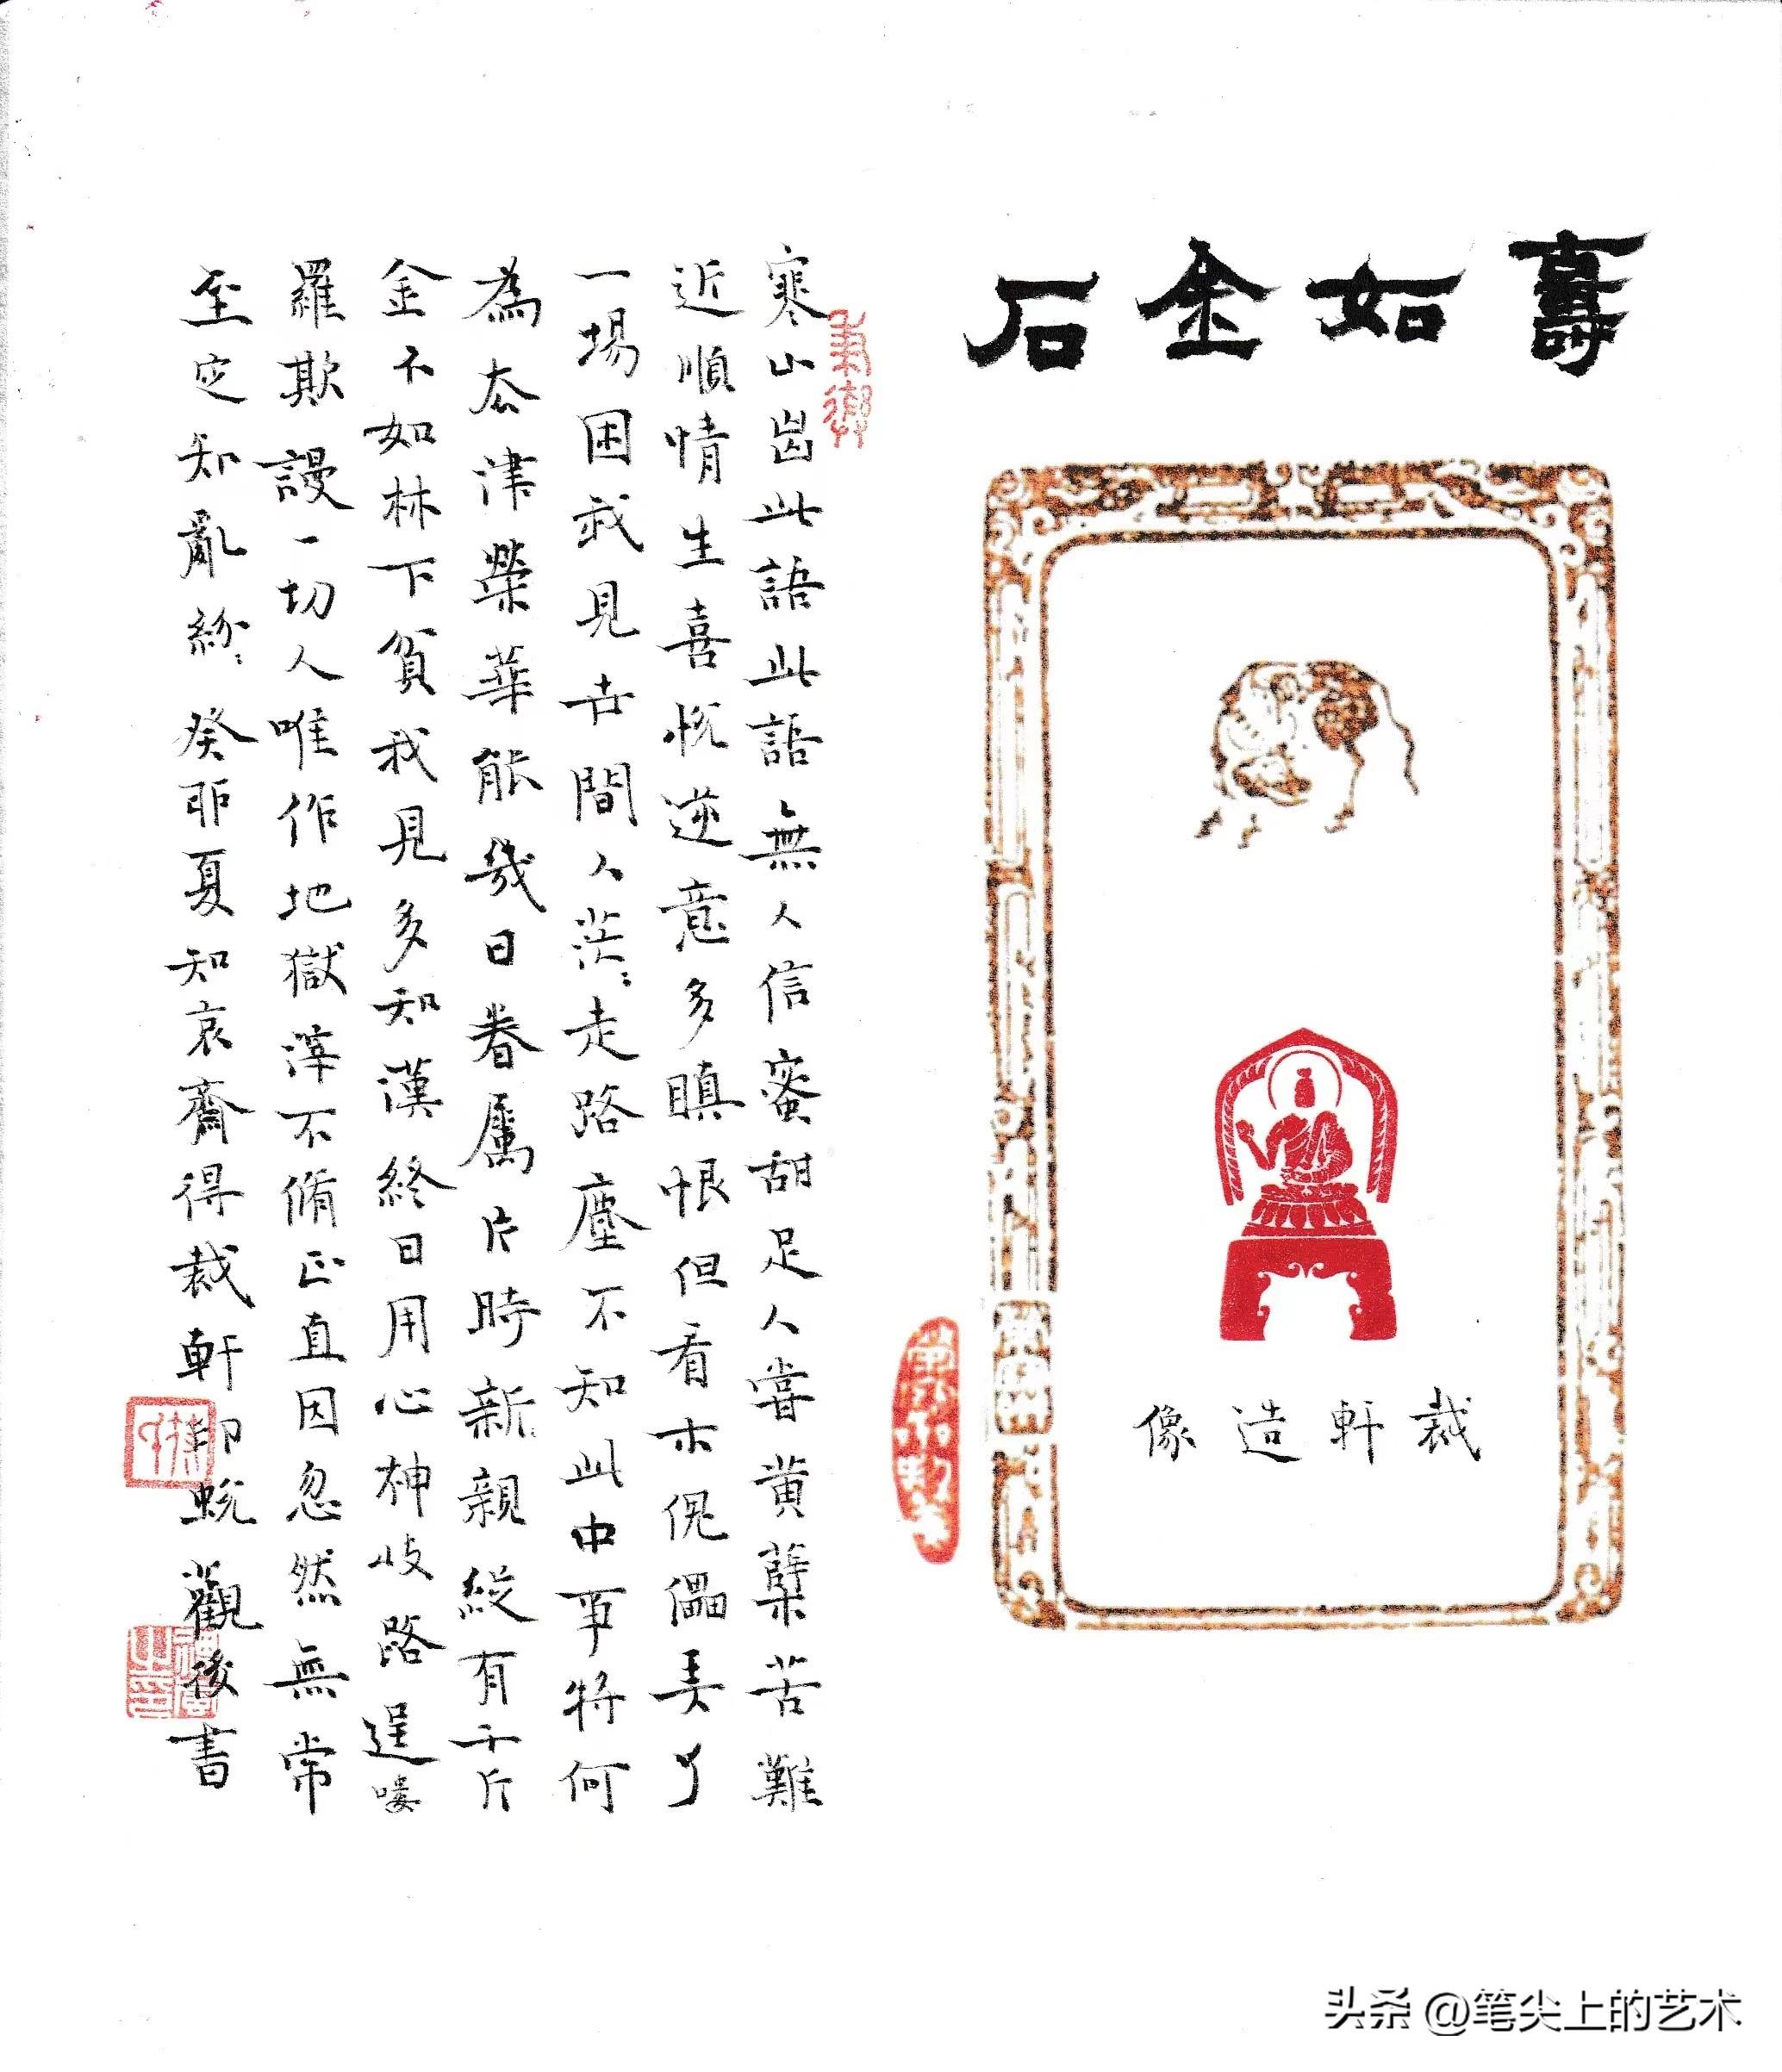 壽如金石
裁軒造像
寒山出此語此語無人信蜜甜足人嘗黄蘖苦難
近順情生喜悦逆意多瞋恨但看木傀儡弄了
一場困我見世間人茫〻走路塵不知此中事将何
為去津榮華能幾日眷屬片時新親縱有千斤
金不如林下貧我見多知漢終日用心神岐路逞嘍
羅欺謾一切人唯作地獄滓不脩正直因忽然無常
至定知亂紛〻癸卯夏知哀齋得裁軒印蜕觀後書
头条 @笔尖上的艺术